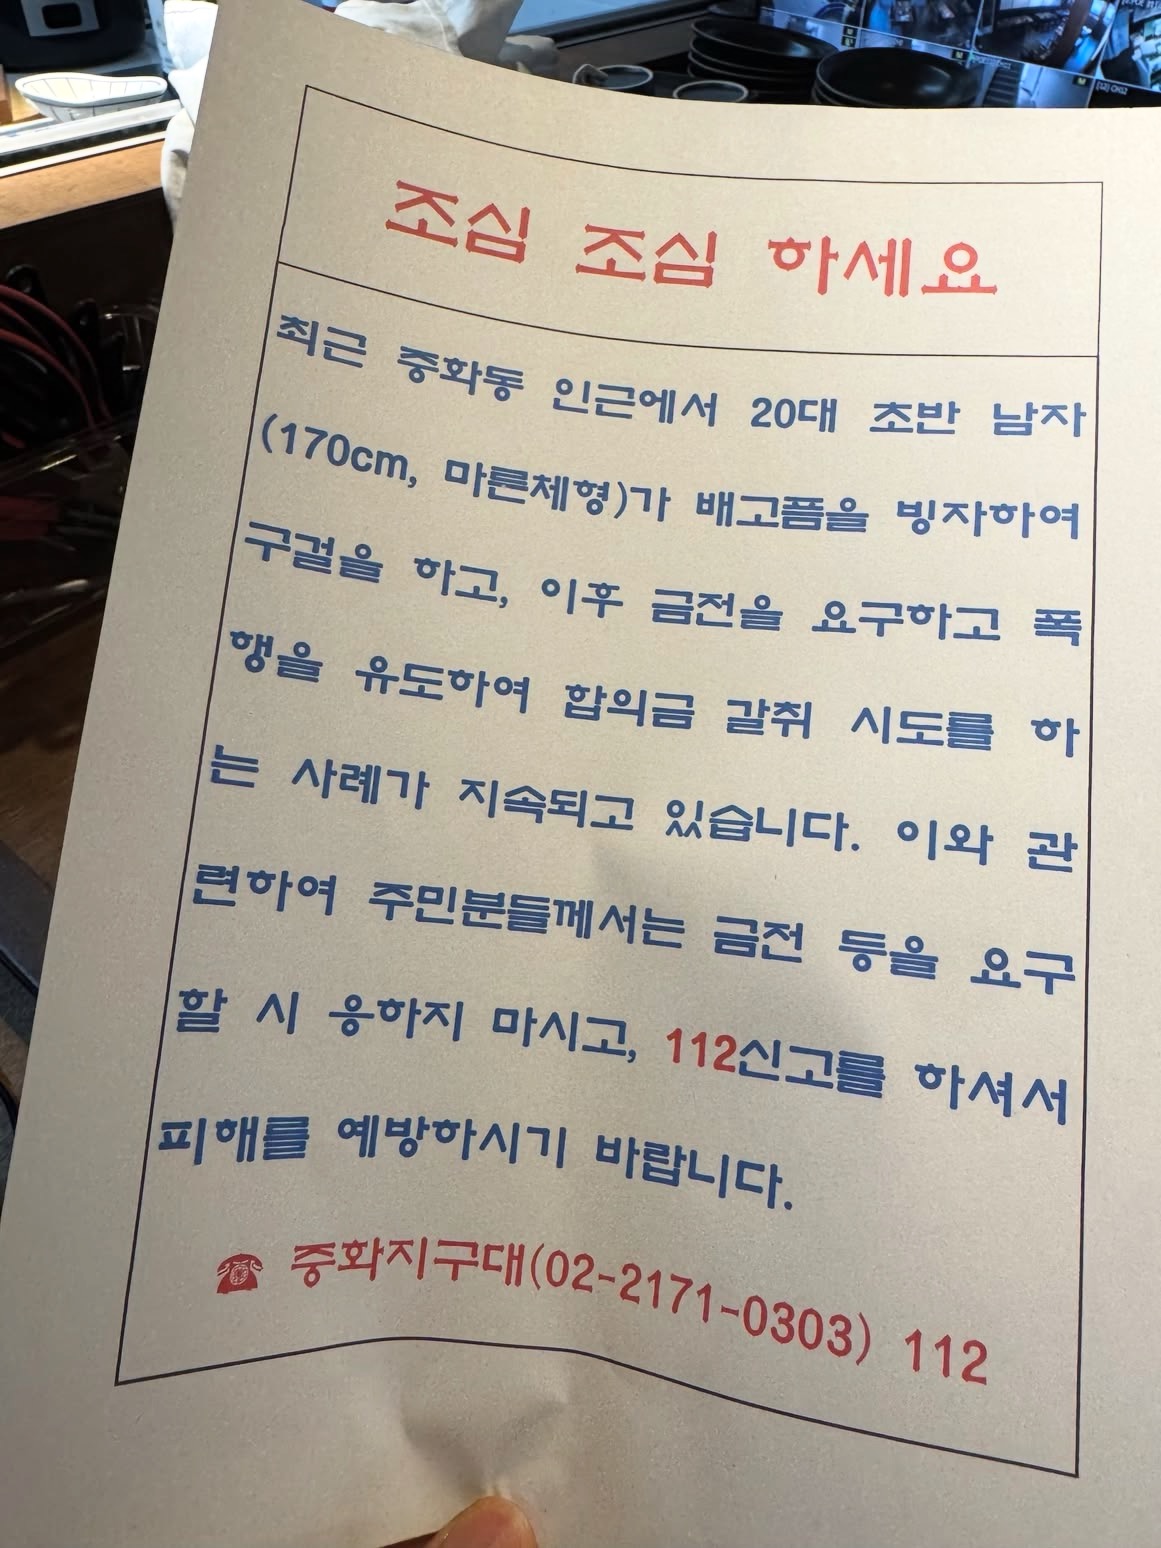 조심 조심 하세요
최근 중화동 인근에서 20대 초반 남자
(170cm, 마른체형)가 배고픔을 빙자하여
구걸을 하고, 이후 금전을 요구하고 폭
행을 유도하여 합의금 갈취 시도를 하
는 사례가 지속되고 있습니다. 이와 관
련하여 주민분들께서는 금전 등을 요구
할 시 응하지 마시고, 112신고를 하셔서
피해를 예방하시기 바랍니다.
☎ 중화지구대(02-2171-0303) 112